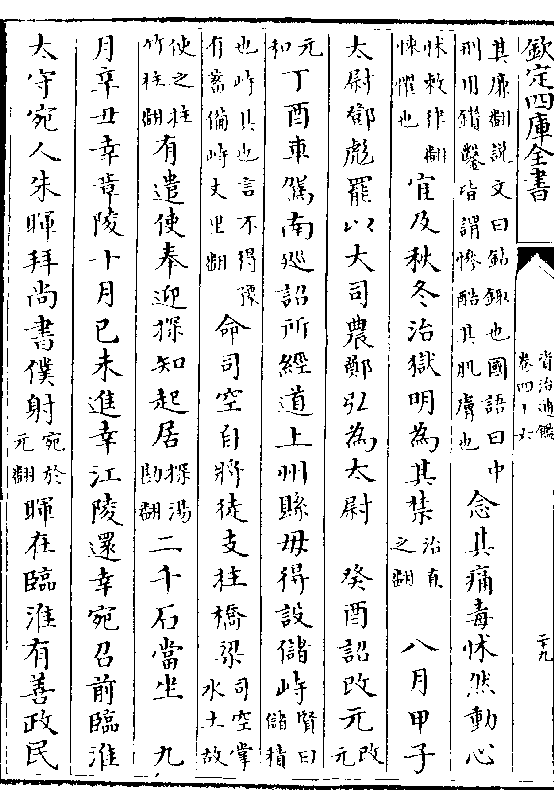 欽定四庫全書
資治通鑑
卷四十六
二十九
其廉翻說文曰鉆銸也國語曰中
刑用鑽鑿皆謂慘酷其肌膚也
念其痛毒怵然動心
怵敕律翻
怵懼也
宜及秋冬治獄明為其禁
治直
之翻
八月甲子
太尉鄧彪罷以大司農鄭弘為太尉 癸酉詔改元
改元
元
和
丁酉車駕南巡詔所經道上州縣毋得設儲峙
賢曰
儲積
也峙具也言不得豫
有蓄備峙丈里翻
命司空自將徒支柱橋梁
司空掌
水土故
使之柱
竹柱翻
有遣使奉迎探知起居
探湯
勘翻
二千石當坐 九
月辛丑幸章陵十月己未進幸江陵還幸宛召前臨淮
太守宛人朱暉拜尚書僕射
宛於
元翻
暉在臨淮有善政民